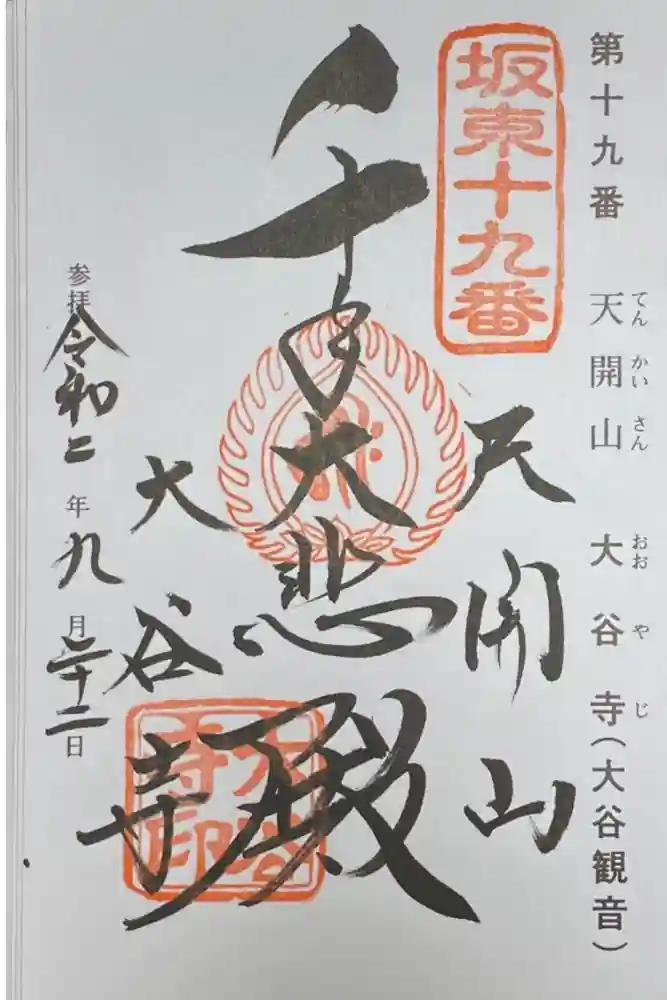 第十九番 天開山 大谷寺(大谷観音)
てんかいさん おおやじ
坂東十九番
天開山
千手大悲殿
大谷寺
大谷寺印
参拝 令和二年九月二十二日